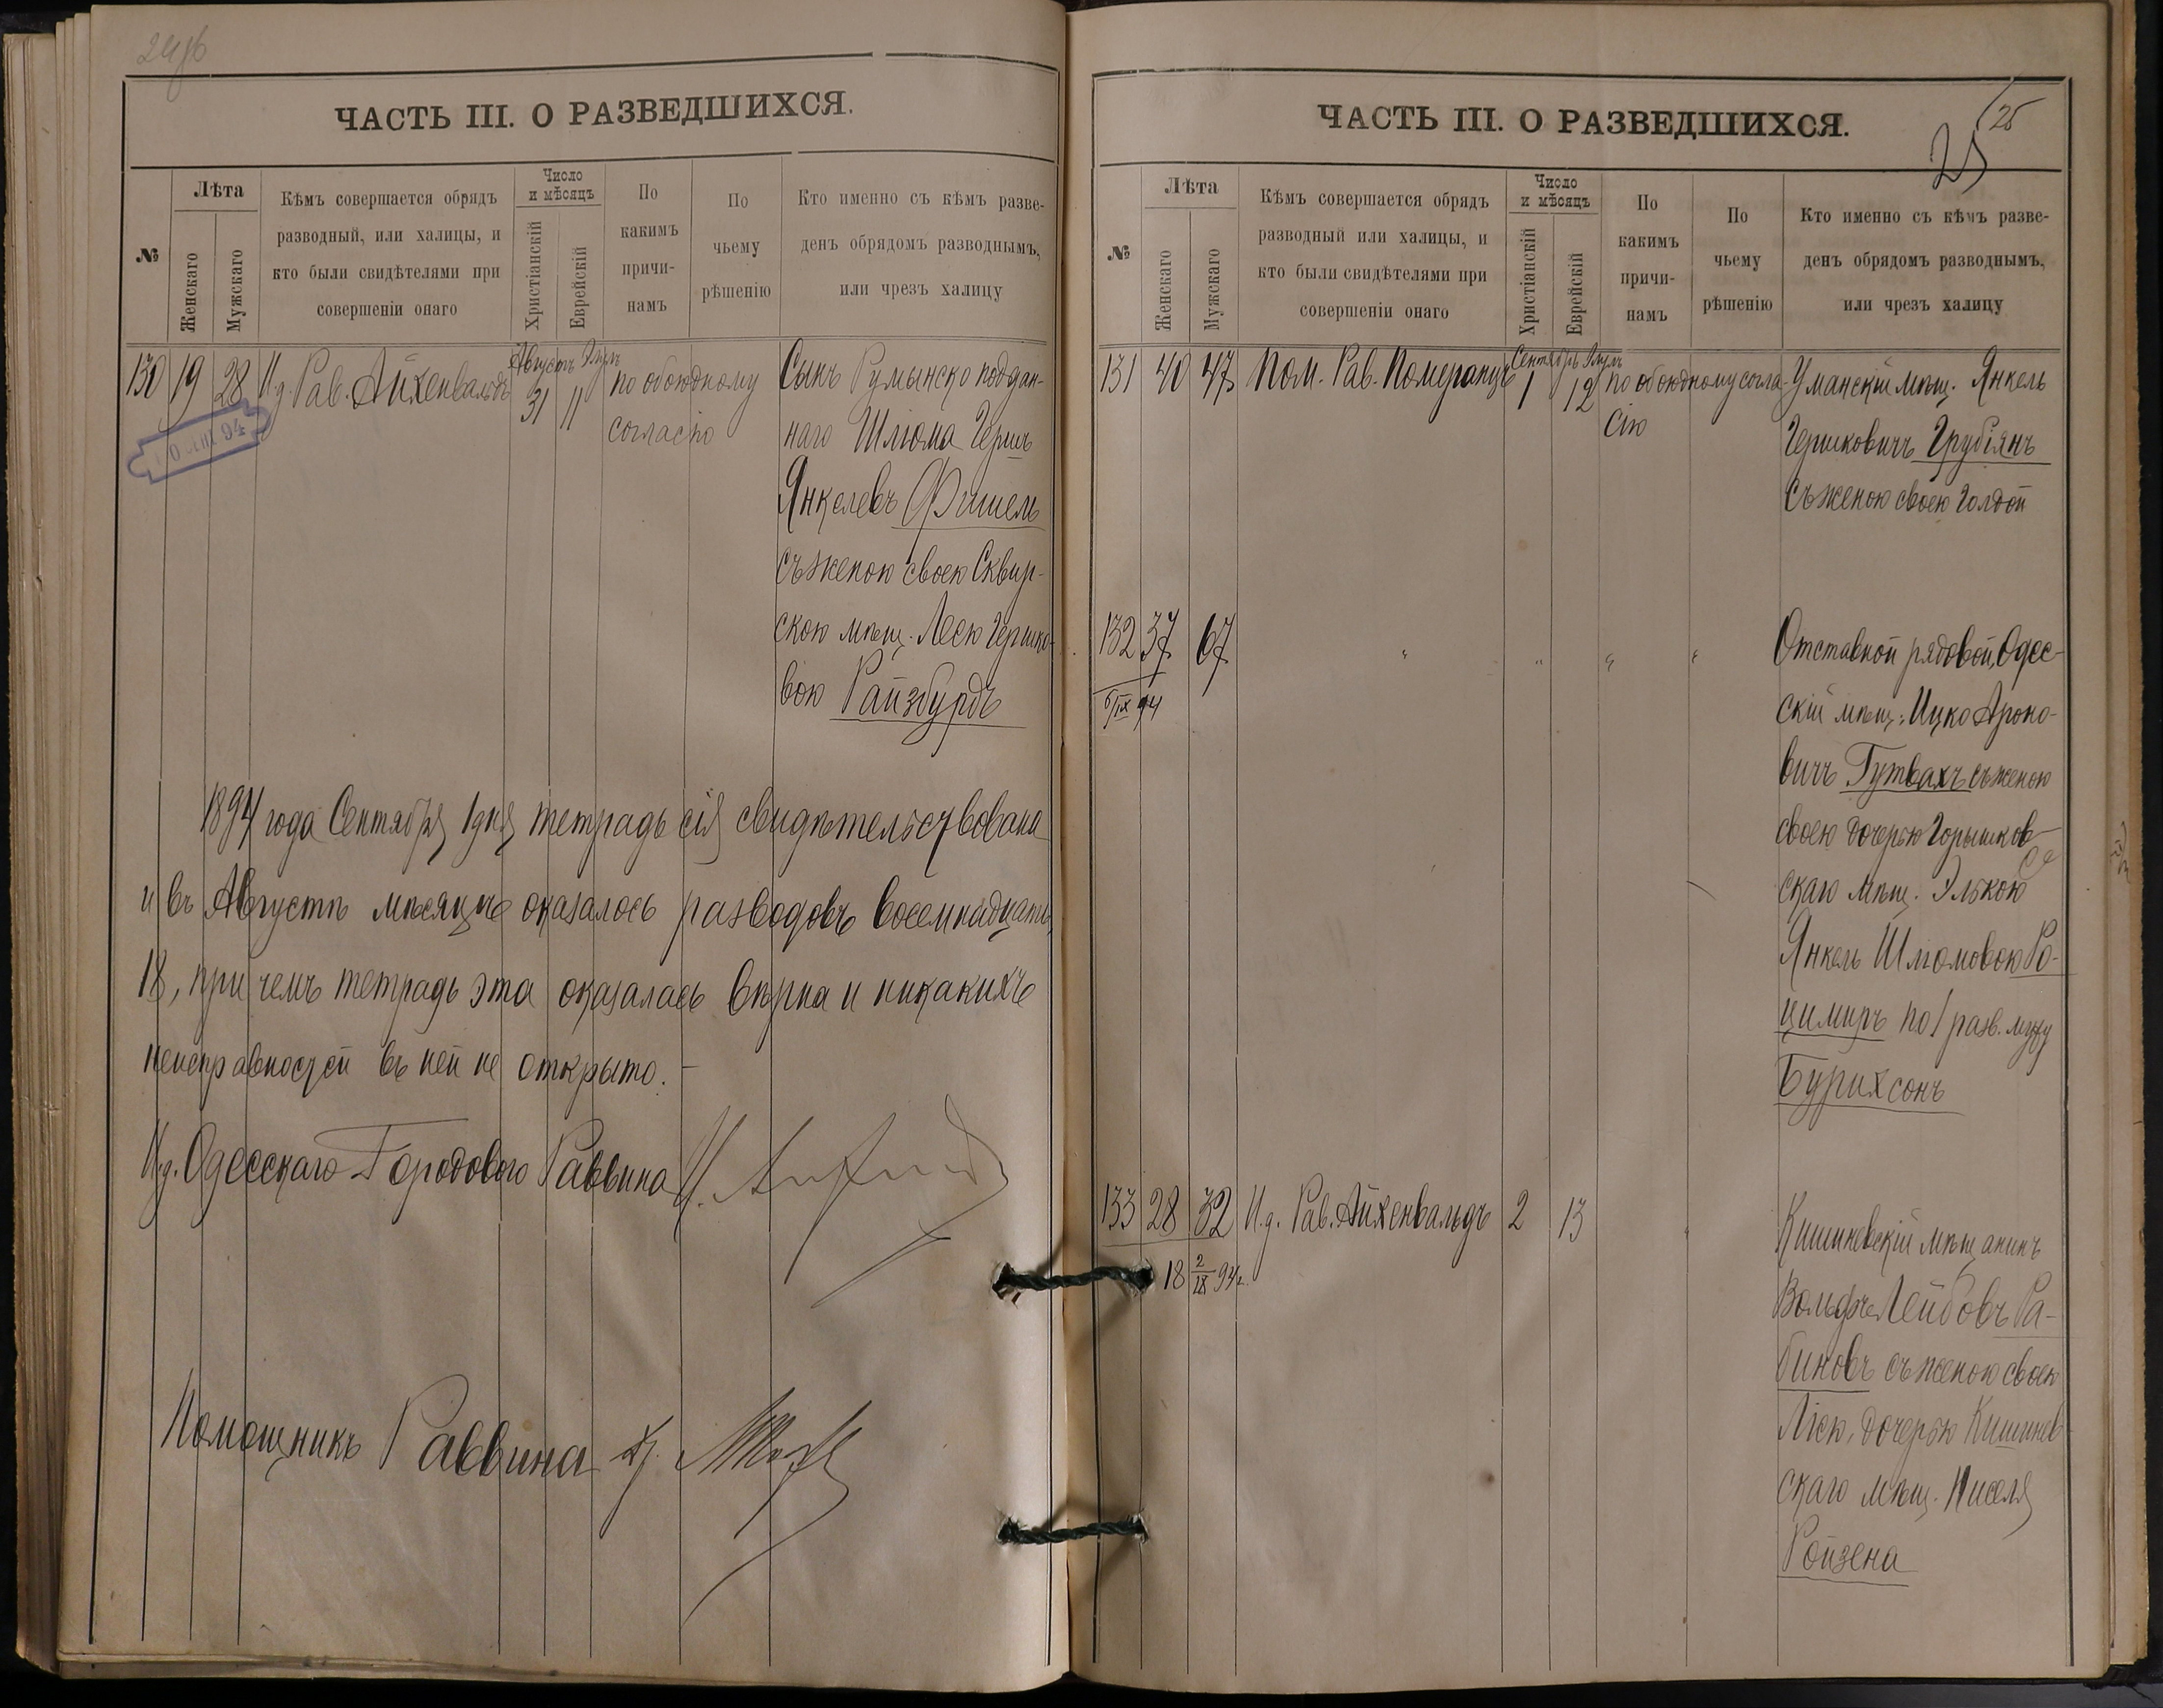 24об
ЧАСТЬ III. О РАЗВЕДШИХСЯ.
№
Лѣта
Женскаго
Мужскаго
Кѣмъ совершается обрядъ
разводный, или халицы, и
кто были свидѣтелями при
совершеніи онаго
Число
и мѣсяцъ
Христіанскій
Еврейскій
По
какимъ
причи-
намъ
По
чьему
рѣшенію
Кто именно съ кѣмъ разве-
денъ обрядомъ разводнымъ,
или чрезъ халицу
Августъ Элулъ
130 19 28 И.д. Рав. Айхенвальдъ 31 11 по обоюдному
согласію
Сынъ Румынско поддан-
наго Шлiома Гершъ
Янкелевъ Фишель
съ женою своею Сквир-
скою мѣщ. Лею Гершко-
вою Райзбурдъ
1894 года Сентября 1 дня тетрадь сія свидѣтельствована
и въ Августѣ мѣсяцѣ оказалось разводовъ восемнадцать,
18, при чемъ тетрадь эта оказалась вѣрна и никакихъ
неисправностей въ ней не открыто. -
И.д. Одесскаго Городового Раввина
Помощникъ Раввина
ЧАСТЬ III. О РАЗВЕДШИХСЯ.
25
25
№
Лѣта
Женскаго
Мужскаго
Кѣмъ совершается обрядъ
разводный или халицы, и
кто были свидѣтелями при
совершеніи онаго
Число
и мѣсяцъ
Христіанскій
Еврейскій
По
какимъ
причи-
намъ
По
чьему
рѣшенію
Кто именно съ кѣмъ разве-
денъ обрядомъ разводнымъ,
или чрезъ халицу
Сентябрь Элулъ
131 40 47 Пом. Рав. Померанцъ 1 12 по обоюдному согла-
сію
Уманскій мѣщ. Янкель
Гершковичъ Грубіянъ
съ женою своею Голдой
132 37 67 " " " "
6/IX 94
Отставной рядовой, Одес-
скій мѣщ. Ицко Ароно-
вичъ Гутвахъ съ женою
своею дочерью Горышков-
скаго мѣщ. Элькою
Янкель Шлiомовою Ро-
цимиръ по 1 разв. мужу
Бурихсонъ
133 28 32 И.д. Рав. Айхенвальдъ 2 13 "
18 2/IX 94 г.
Кишиневскій мѣщанинъ
Вольфъ Лейбовъ Ра-
биновъ съ женою своею
Лiею, дочерью Кишинев-
скаго мѣщ. Ниселя
Ройзена